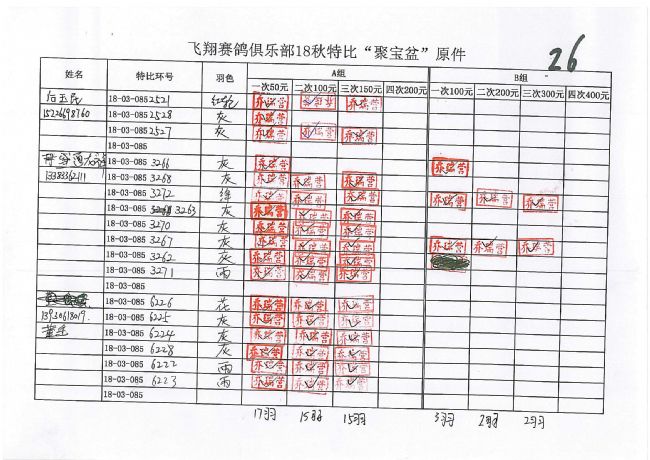 飞翔赛鸽俱乐部18秋特比“聚宝盆”原件
26
姓名 特比环号 羽色 A组 B组
一次50元 二次100元 三次150元 四次200元 一次100元 二次200元 三次300元 四次400元
18-03-085 2521 乔瑞营 乔瑞营 乔瑞营
15226698760 18-03-085 2528 灰 乔瑞营
18-03-085 2527 灰 乔瑞营 乔瑞营 乔瑞营
18-03-085
18-03-085 3266 灰 乔瑞营 乔瑞营
13383362111 18-03-085 3268 灰 乔瑞营 乔瑞营 乔瑞营
18-03-085 3272 绛 乔瑞营 乔瑞营 乔瑞营 乔瑞营 乔瑞营 乔瑞营
18-03-085 3263 灰 乔瑞营 乔瑞营 乔瑞营
18-03-085 3270 灰 乔瑞营 乔瑞营 乔瑞营
18-03-085 3267 灰 乔瑞营 乔瑞营 乔瑞营 乔瑞营 乔瑞营 乔瑞营
18-03-085 3262 灰 乔瑞营 乔瑞营 乔瑞营
18-03-085 3271 雨 乔瑞营 乔瑞营 乔瑞营
18-03-085
18-03-085 6226 花 乔瑞营 乔瑞营 乔瑞营
13930618019 18-03-085 6225 灰 乔瑞营 乔瑞营 乔瑞营
18-03-085 6224 灰 乔瑞营 乔瑞营 乔瑞营
18-03-085 6228 灰 乔瑞营 乔瑞营 乔瑞营
18-03-085 6222 雨 乔瑞营 乔瑞营 乔瑞营
18-03-085 6223 雨 乔瑞营 乔瑞营 乔瑞营
18-03-085
17羽 15羽 15羽 3羽 2羽 2羽